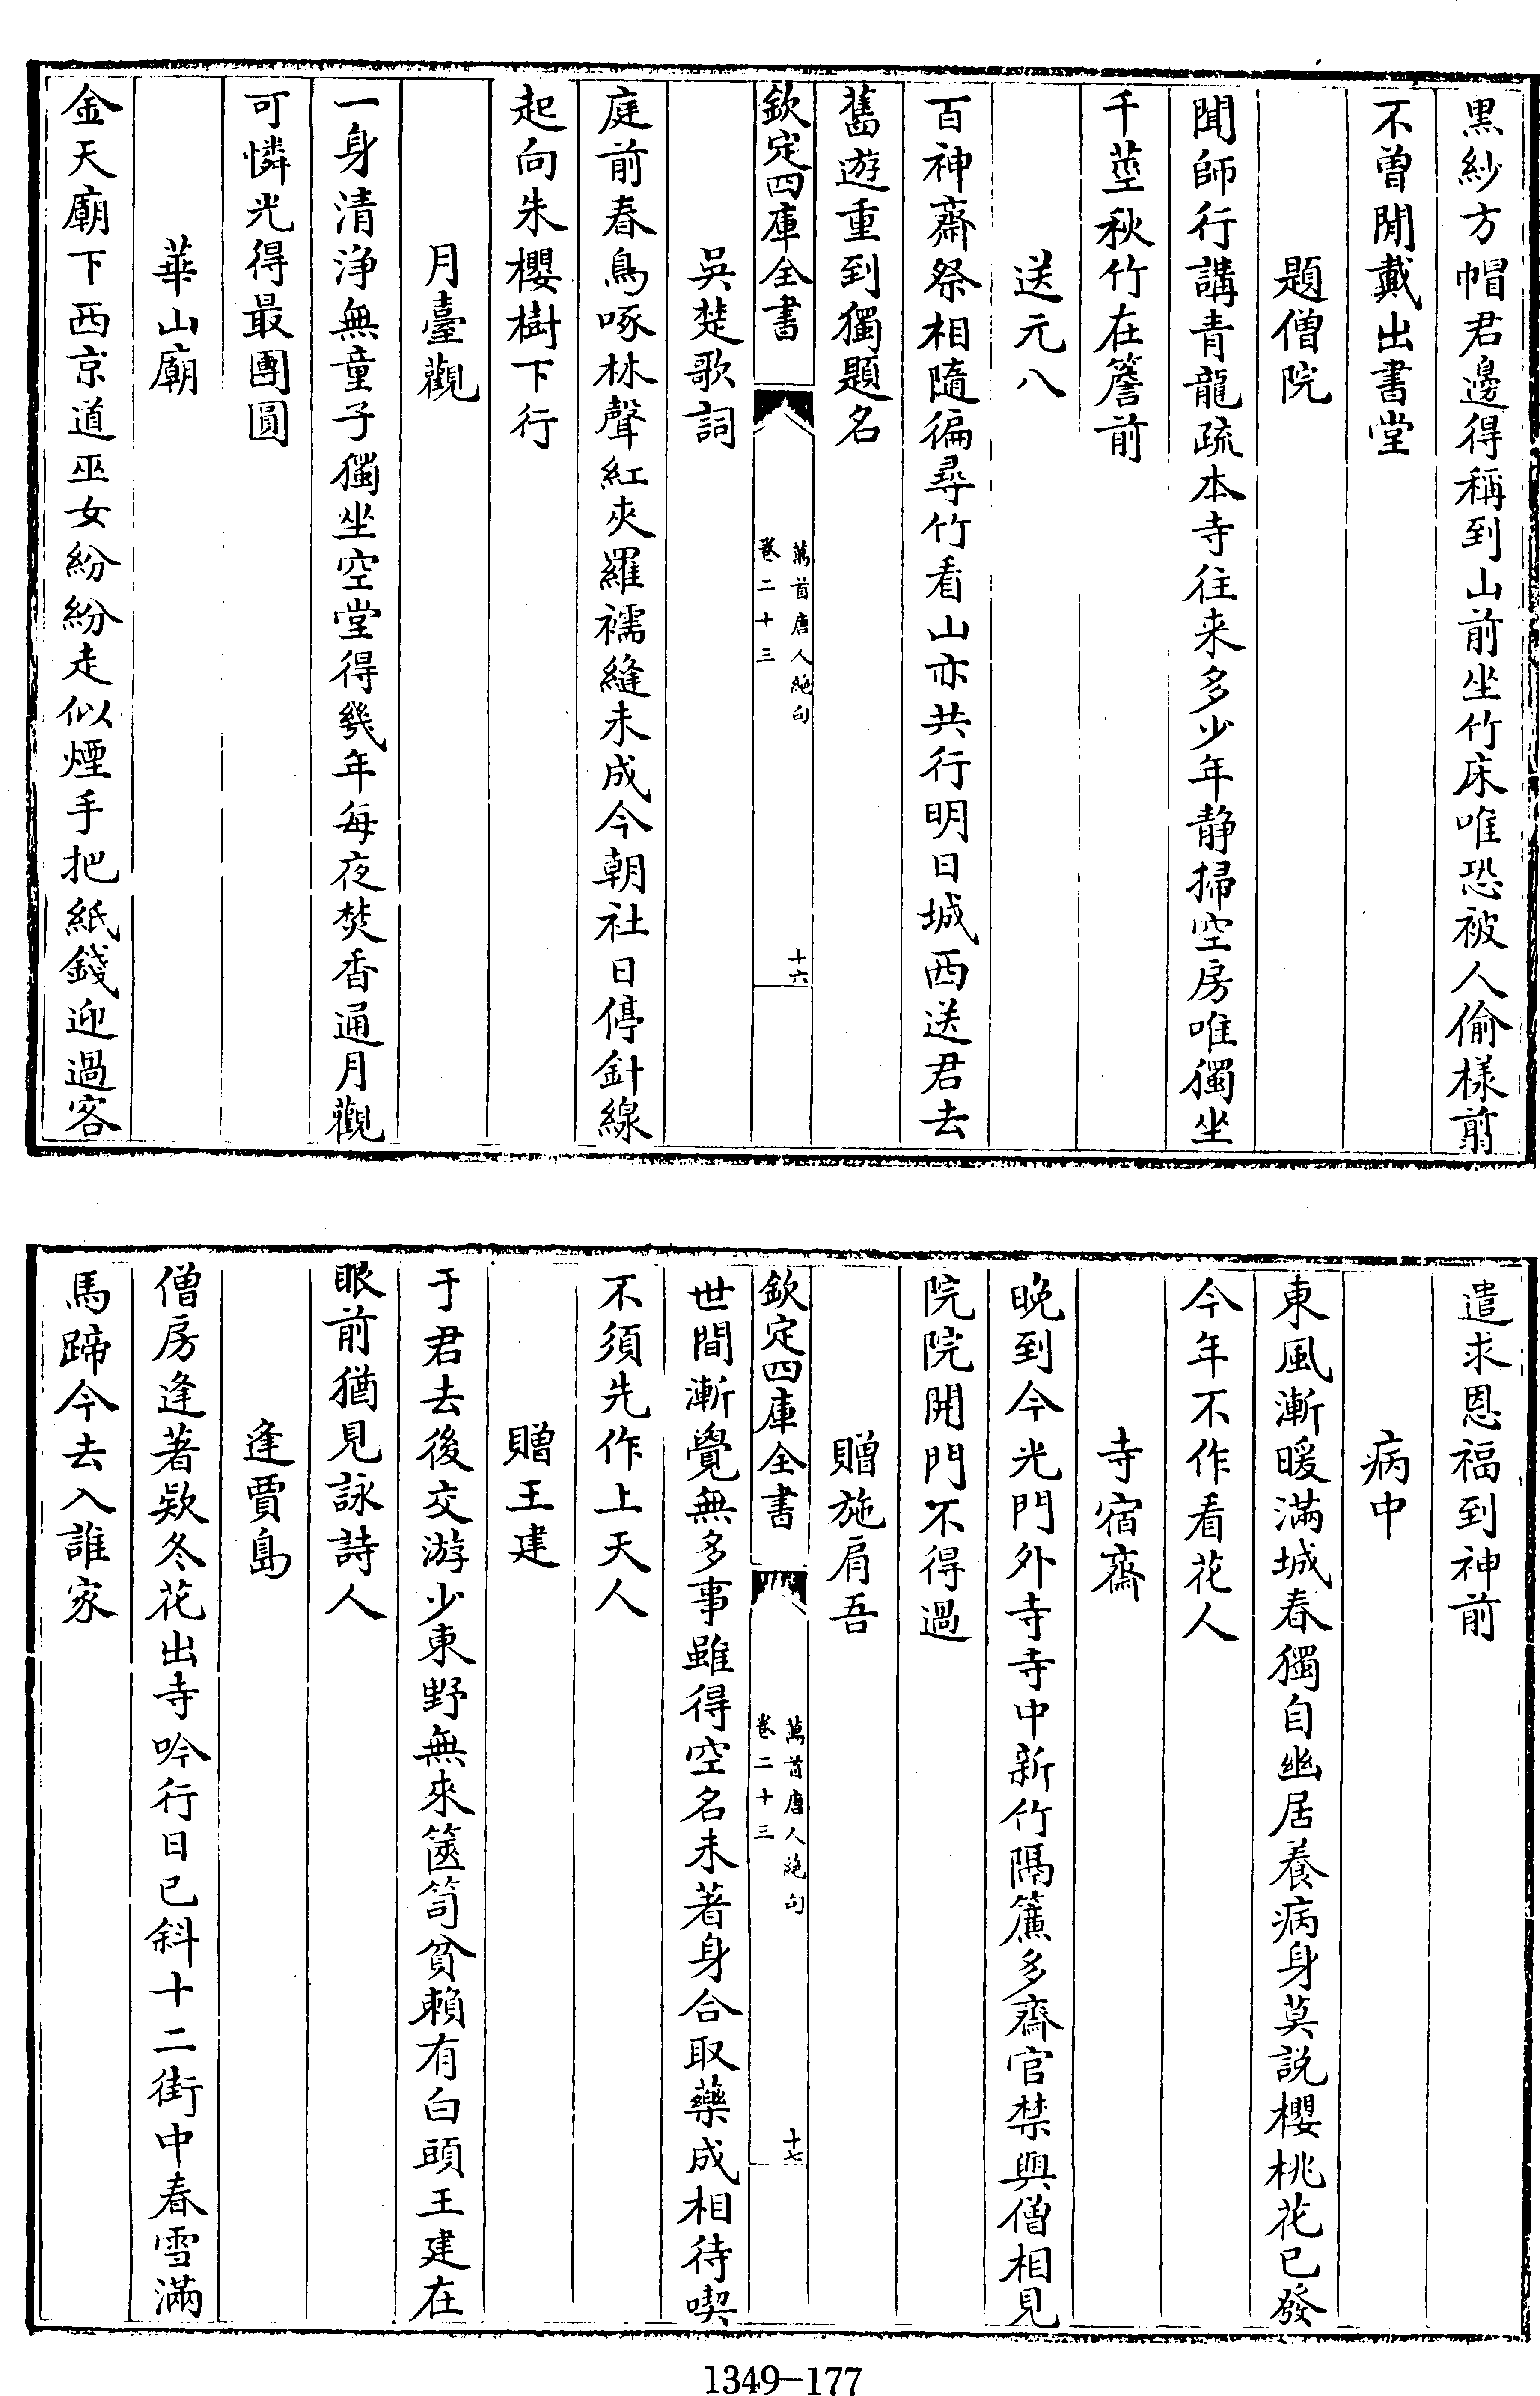 黒紗方帽君邊得稱到山前坐竹床唯恐被人偷様翦
不曽閒戴出書堂
題僧院
聞師行講青龍疏本寺往来多少年静掃空房唯獨坐
千莖秋竹在簷前
送元八
百神齋祭相隨徧尋竹看山亦共行明日城西送君去
舊遊重到獨題名
欽定四庫全書
萬首唐人絶句
卷二十三
十六
吳楚歌詞
庭前春鳥啄林聲紅夾羅襦縫未成今朝社日停針線
起向朱櫻樹下行
月臺觀
一身清浄無童子獨坐空堂得幾年每夜焚香通月觀
可憐光得最團圓
華山廟
金天廟下西京道巫女紛紛走似煙手把紙錢迎過客
遣求恩福到神前
病中
東風漸暖滿城春獨自幽居養病身莫説櫻桃花已發
今年不作看花人
寺宿齋
晚到今光門外寺寺中新竹隔簾多齋官禁與僧相見
院院開門不得過
贈施肩吾
欽定四庫全書
萬首唐人絶句
卷二十三
十七
世間漸覺無多事雖得空名未著身合取藥成相待喫
不須先作上天人
贈王建
于君去後交游少東野無來篋笥貧賴有白頭王建在
眼前猶見詠詩人
逢賈島
僧房逢著欵冬花出寺吟行日已斜十二街中春雪滿
馬蹄今去入誰家
1349-177